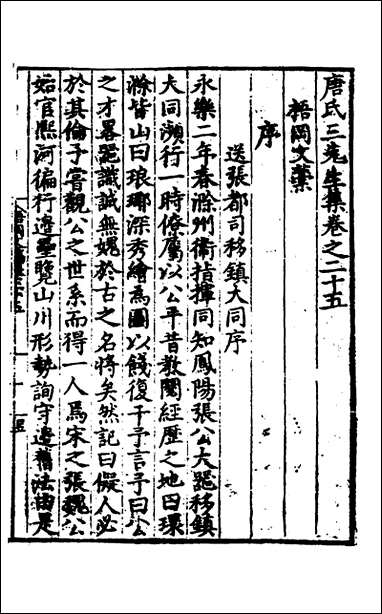 唐氏三先生集卷之二十五
梧岡文藁
序
送張都司移鎮大同序
永樂二年春滁州衞指揮同知鳳陽張公大器移鎮
大同瀕行一時僚屬以公平昔教閱經歷之地曰環
滁皆山曰琅琊深秀繪為圖以餞復于予言予曰公
之才畧噐識誠無媿於古之名將矣然記曰儗人必
於其倫予嘗觀公之世系而得一人焉宋之張魏公
始官熈河徧行邊壘覽山川形勢詢守邊舊法由是